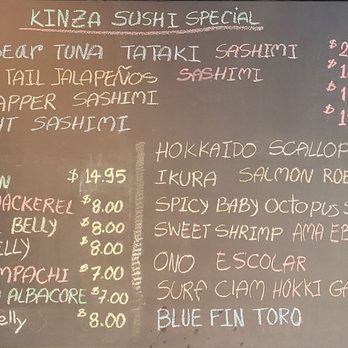 KINZA SUSHI SPECIAL
SEAR TUNA TATAKI SASHIMI $2
TAIL JALAPEÑOS SASHIMI $1
APPER SASHIMI $1
HT SASHIMI $1
N $14.95
MACKEREL $8.00
BELLY $8.00
ELLY $8.00
MPACHI $7.00
ALBACORE $7.00
elly $8.00
HOKKAIDO SCALLOP
IKURA SALMON ROE
SPICY BABY OCTOPUS S
SWEET SHRIMP AMA EB
ONO ESCOLAR
SURF CLAM HOKKI GA
BLUE FIN TORO